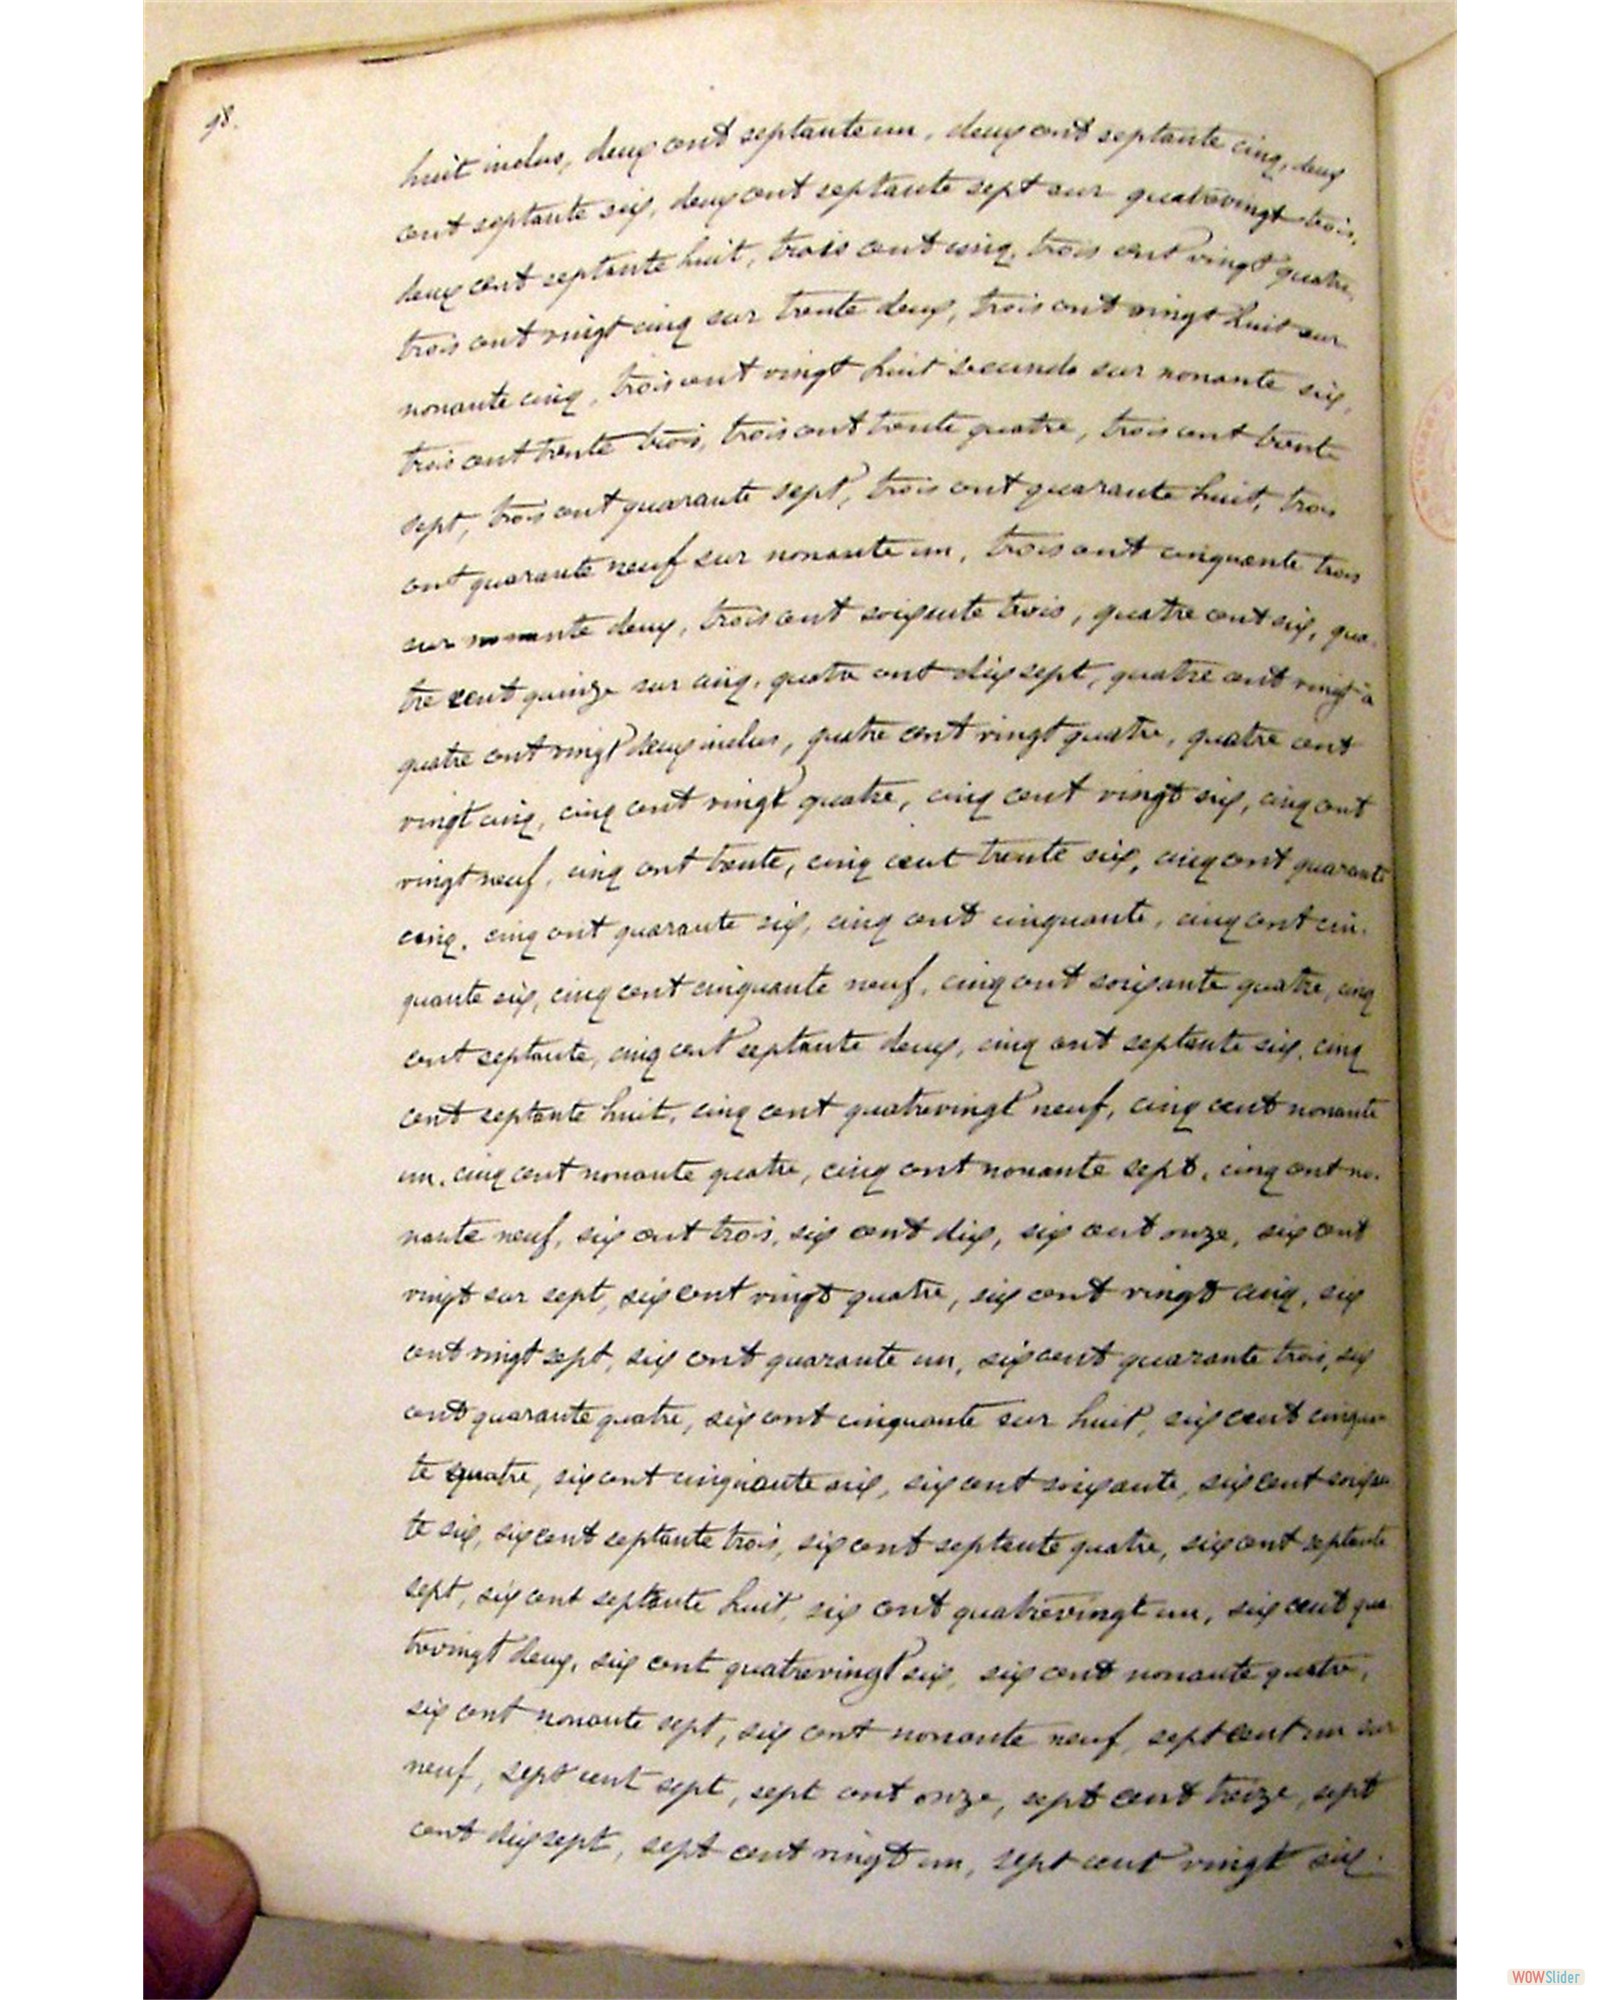 98.
huit inclus, deux cent septante un, deux cent septante cinq, deux
cent septante six, deux cent septante sept sur quatrevingt trois,
deux cent septante huit, trois cent cinq, trois cent vingt quatre,
trois cent vingt cinq sur trente deux, trois cent vingt huit sur
nonante cinq, trois cent vingt huit secundo sur nonante six,
trois cent trente trois, trois cent trente quatre, trois cent trente
sept, trois cent quarante sept, trois cent quarante huit, trois
cent quarante neuf sur nonante un, trois cent cinquante trois
sur nonante deux, trois cent soixante trois, quatre cent six, qua-
tre cent quinze sur cinq, quatre cent dix sept, quatre cent vingt à
quatre cent vingt deux inclus, quatre cent vingt quatre, quatre cent
vingt cinq, cinq cent vingt quatre, cinq cent vingt six, cinq cent
vingt neuf, cinq cent trente, cinq cent trente six, cinq cent quarante
cinq, cinq cent quarante six, cinq cent cinquante, cinq cent cin-
quante six, cinq cent cinquante neuf, cinq cent soixante quatre, cinq
cent septante, cinq cent septante deux, cinq cent septante six, cinq
cent septante huit, cinq cent quatrevingt neuf, cinq cent nonante
un, cinq cent nonante quatre, cinq cent nonante sept, cinq cent no-
nante neuf, six cent trois, six cent dix, six cent onze, six cent
vingt sur sept, six cent vingt quatre, six cent vingt cinq, six
cent vingt sept, six cent quarante un, six cent quarante trois, six
cent quarante quatre, six cent cinquante sur huit, six cent cinquan-
te quatre, six cent cinquante six, six cent soixante, six cent soixan-
te six, six cent septante trois, six cent septante quatre, six cent septante
sept, six cent septante huit, six cent quatrevingt un, six cent qua-
trevingt deux, six cent quatrevingt six, six cent nonante quatre,
six cent nonante sept, six cent nonante neuf, sept cent un sur
neuf, sept cent sept, sept cent onze, sept cent treize, sept
cent dix sept, sept cent vingt un, sept cent vingt six.
WOWSlider